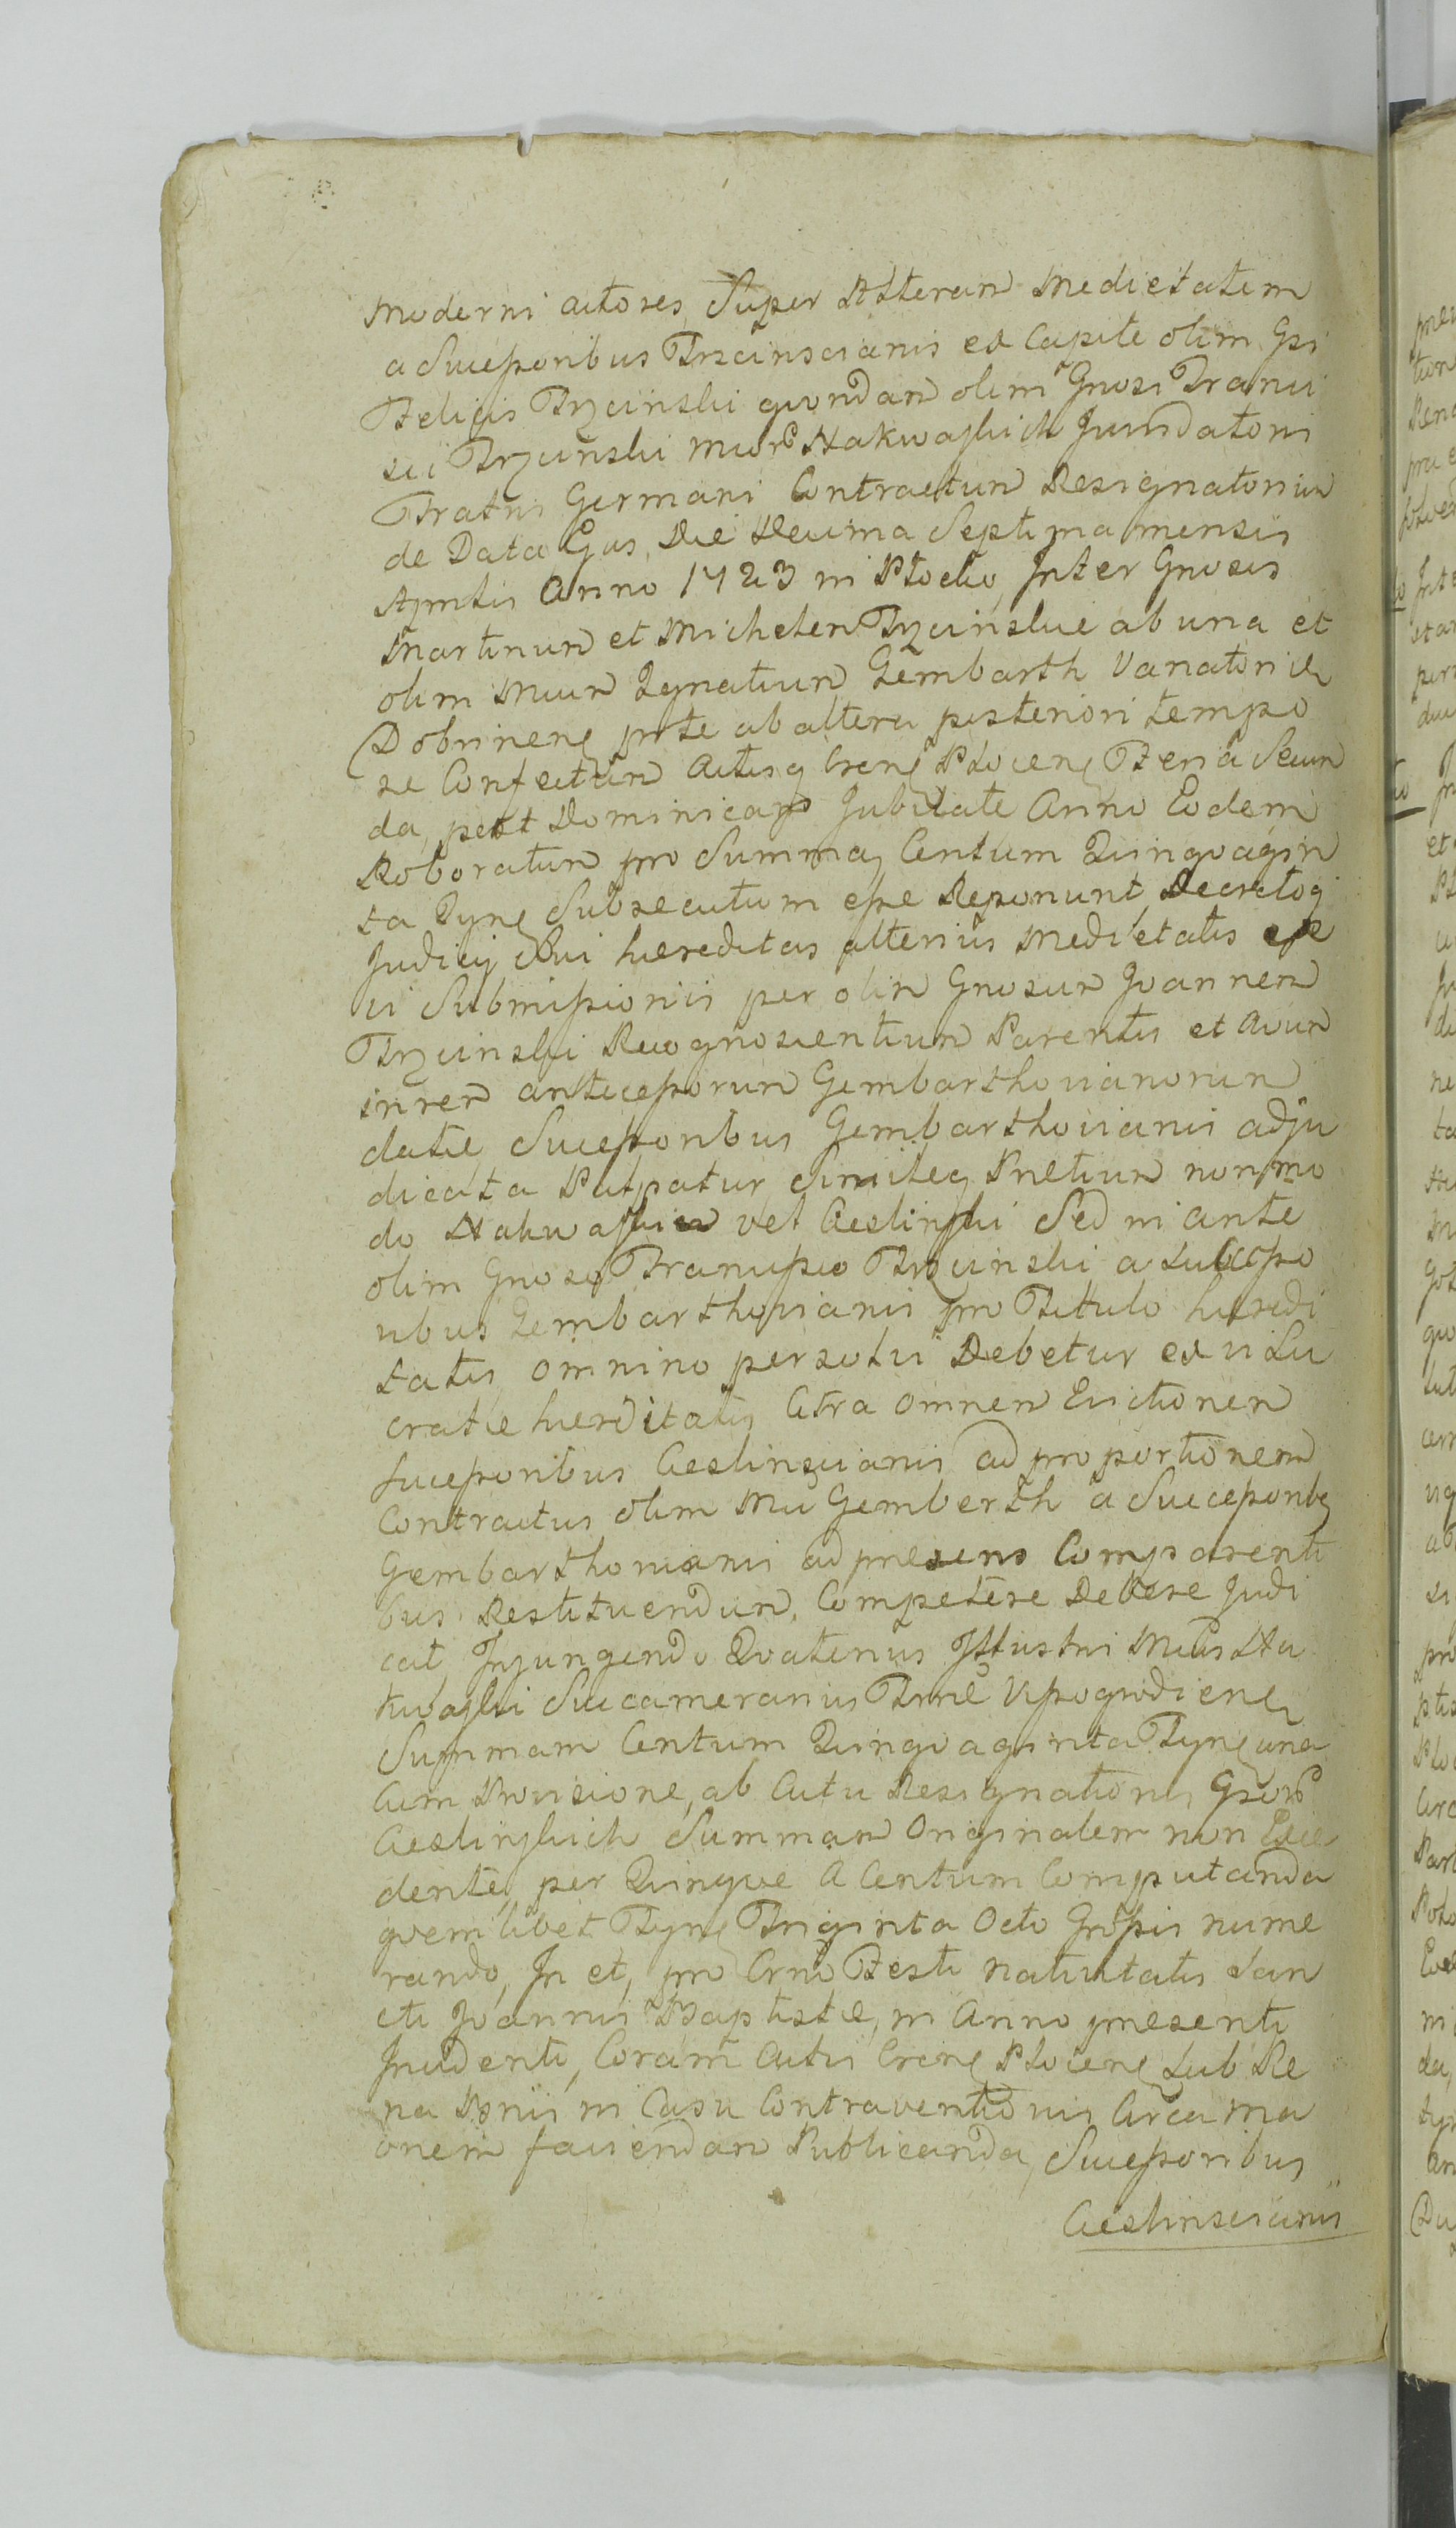 Moderni actores Super Alteram Medietatem
a Successoribus Trzcinscianis ex Capite olim Gsi
Felicis Trzcinski quondam olim Gnosi Franci
sci Trzcinski Mcorū Nakwaskich Jurisdatoris
Fratris Germani Contractum Resignatorium
de Data Ejus, Die Decima Septima mensis
Aprilis Anno 1723 in Plocko, Inter Gnosos
Martinum et Michelem Trzcinskie ab una et
olim Mcum Ignatium Gembarth Vanatorie
Dobrinens pte ab altera posteriori tempo
re Confectum Actisq Crens Plocens Feria Secun
da, post Dominicam Jubilate Anno Eodem
Roboratum pro Summa, Centum Quinquagin
ta Tyns Subsecutum esse Reponunt Decretoq
Judicij Sui haereditas alterius Medietatis ex
vi Submissionis per olim Gnosum Joannem
Trzcinski Recognoscentium Parentis et Avum
in rem antecessorum Gembarthovianorum
datae Successoribus Gembarthovianis adju
dicata Patpatur Simileq Pretium non mo
do Nakwaskim vel Cieslinski Sed ni ante
olim Gnoso Francisco Trzcinski a Successo
ribus Gembarthovianis pro Titulo haeredi
tatis omnino persolui Debetur ex vi Lu
cratae haereditatis Citra omnem Evictionem
Successoribus Cieslinscianis ad proportionem
Contractus olim Mci Gemberth a Successoribq
Gembarthovianis ad presens Comparenti
bus Restituendum, Competere Debere Judi
cat, Injungendo Quatenus Illustris Mcus Na
kwaski Succamerarius Trrae Vissogrodiens
Summam Centum Quinquaginta Tyns una
Cum Provisione, ab Actu Resignationis Gsorū
Cieslinskich Summam Originalem non Exce
dente, per Quinque a Centum Computanda
quemlibet Tyns Triginta Octo Grossis nume
rando, In et, pro Crno Festi Nativitatis San
cti Joannis Baptistae, in Anno presenti
Incidenti, Coram Actis Crens Plocens Sub Pe
na Bnii in Casu Contraventionis Circa ma
onem faciendam Publicanda, Successoribus
Cieslinscianis